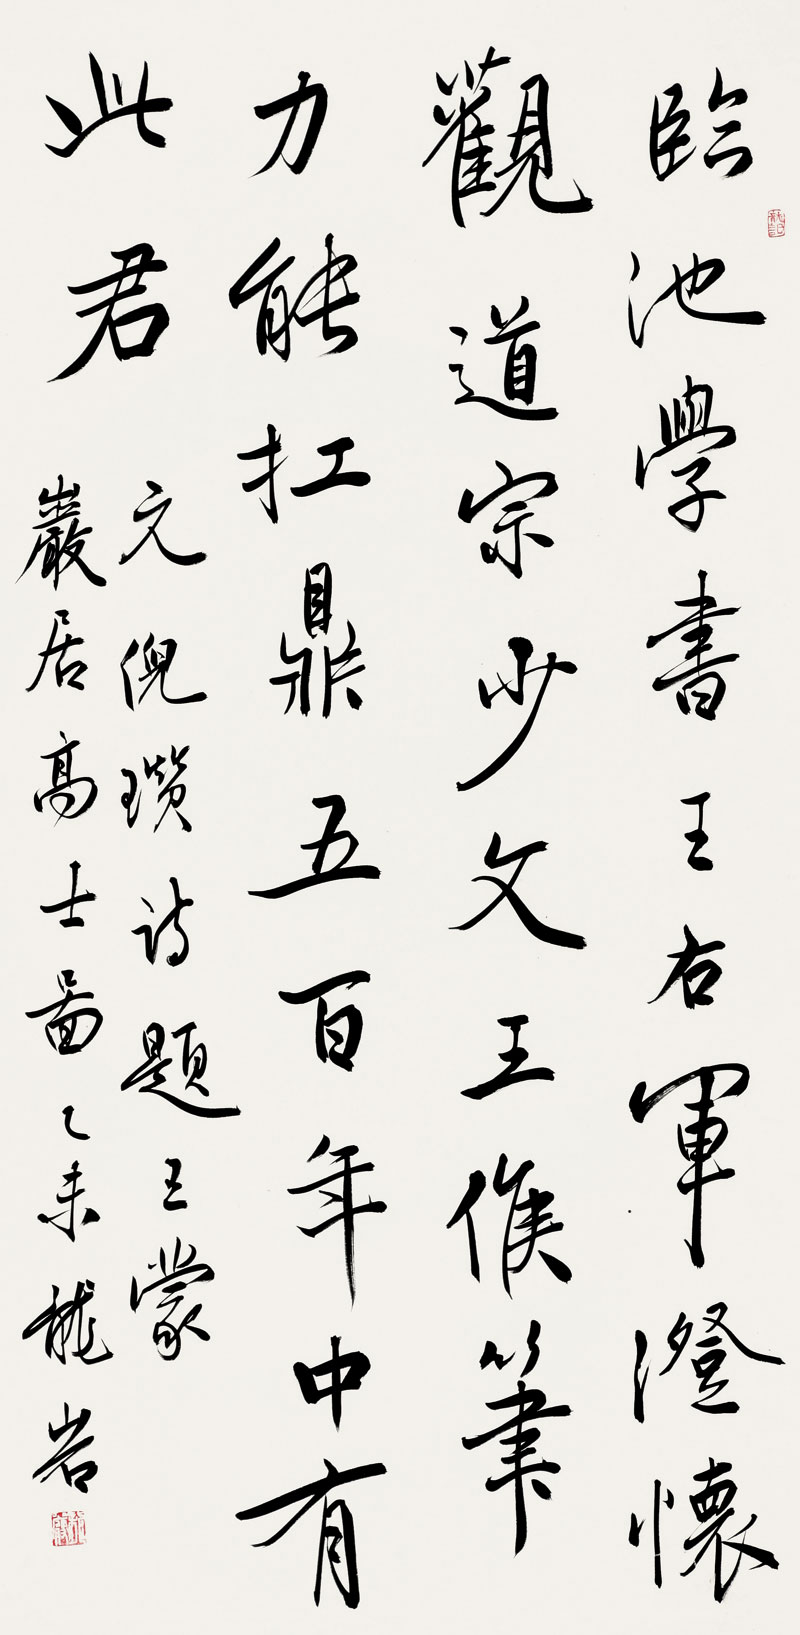 臨池學書王右軍澄懷
觀道宗少文王侯筆
力能扛鼎五百年中有
此君
元倪瓚詩題王蒙
巖居高士圖乙未龍岩